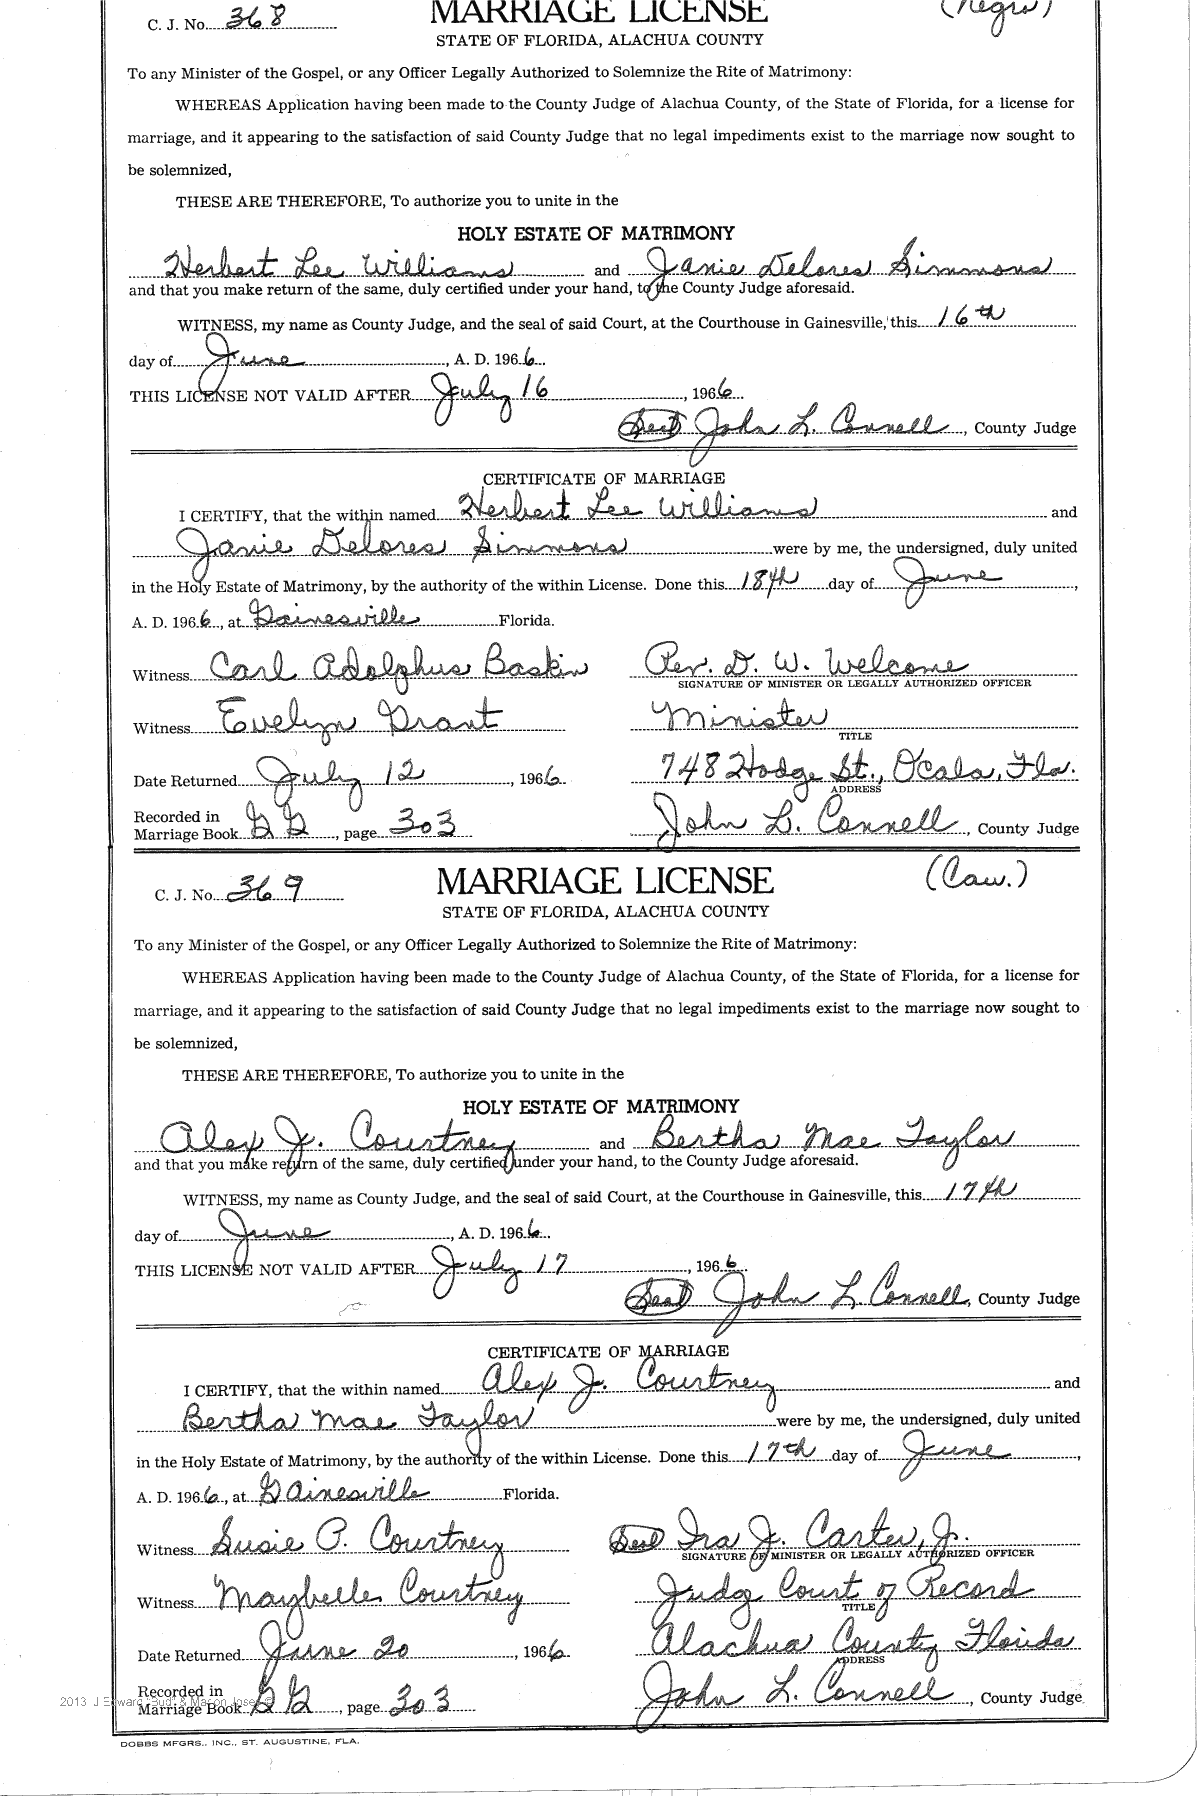 C. J. No. 368 MARRIAGE LICENSE (Negro)
STATE OF FLORIDA, ALACHUA COUNTY
To any Minister of the Gospel, or any Officer Legally Authorized to Solemnize the Rite of Matrimony:
WHEREAS Application having been made to the County Judge of Alachua County, of the State of Florida, for a license for
marriage, and it appearing to the satisfaction of said County Judge that no legal impediments exist to the marriage now sought to
be solemnized,
THESE ARE THEREFORE, To authorize you to unite in the
HOLY ESTATE OF MATRIMONY
Herbert Lee Williams and Janie Delores Simmons
and that you make return of the same, duly certified under your hand, to the County Judge aforesaid.
WITNESS, my name as County Judge, and the seal of said Court, at the Courthouse in Gainesville, this 16th
day of June, A. D. 1966.
THIS LICENSE NOT VALID AFTER July 16, 1966
(Seal) John L. Connell, County Judge
CERTIFICATE OF MARRIAGE
I CERTIFY, that the within named Herbert Lee Williams and
Janie Delores Simmons were by me, the undersigned, duly united
in the Holy Estate of Matrimony, by the authority of the within License. Done this 18th day of June,
A. D. 1966, at Gainesville Florida.
Witness Carl Adolphus Baskin Rev. D. W. Welcome
SIGNATURE OF MINISTER OR LEGALLY AUTHORIZED OFFICER
Witness Evelyn Grant Minister
TITLE
Date Returned July 12, 1966 748 Hodge St., Ocala, Fla.
ADDRESS
Recorded in
Marriage Book GG, page 303 John L. Connell, County Judge
C. J. No. 369 MARRIAGE LICENSE (Cau.)
STATE OF FLORIDA, ALACHUA COUNTY
To any Minister of the Gospel, or any Officer Legally Authorized to Solemnize the Rite of Matrimony:
WHEREAS Application having been made to the County Judge of Alachua County, of the State of Florida, for a license for
marriage, and it appearing to the satisfaction of said County Judge that no legal impediments exist to the marriage now sought to
be solemnized,
THESE ARE THEREFORE, To authorize you to unite in the
HOLY ESTATE OF MATRIMONY
Alex J. Courtney and Bertha Mae Taylor
and that you make return of the same, duly certified under your hand, to the County Judge aforesaid.
WITNESS, my name as County Judge, and the seal of said Court, at the Courthouse in Gainesville, this 17th
day of June, A. D. 1966.
THIS LICENSE NOT VALID AFTER July 17, 1966
(Seal) John L. Connell, County Judge
CERTIFICATE OF MARRIAGE
I CERTIFY, that the within named Alex J. Courtney and
Bertha Mae Taylor were by me, the undersigned, duly united
in the Holy Estate of Matrimony, by the authority of the within License. Done this 17th day of June,
A. D. 1966, at Gainesville Florida.
Witness Susie P. Courtney (Seal) Ira J. Carter, Jr.
SIGNATURE OF MINISTER OR LEGALLY AUTHORIZED OFFICER
Witness Maybelle Courtney Judge Court of Record
TITLE
Date Returned June 20, 1966 Alachua County Florida
ADDRESS
Recorded in
Marriage Book GG, page 303 John L. Connell, County Judge
DOBBS MFGRS., INC., ST. AUGUSTINE, FLA.